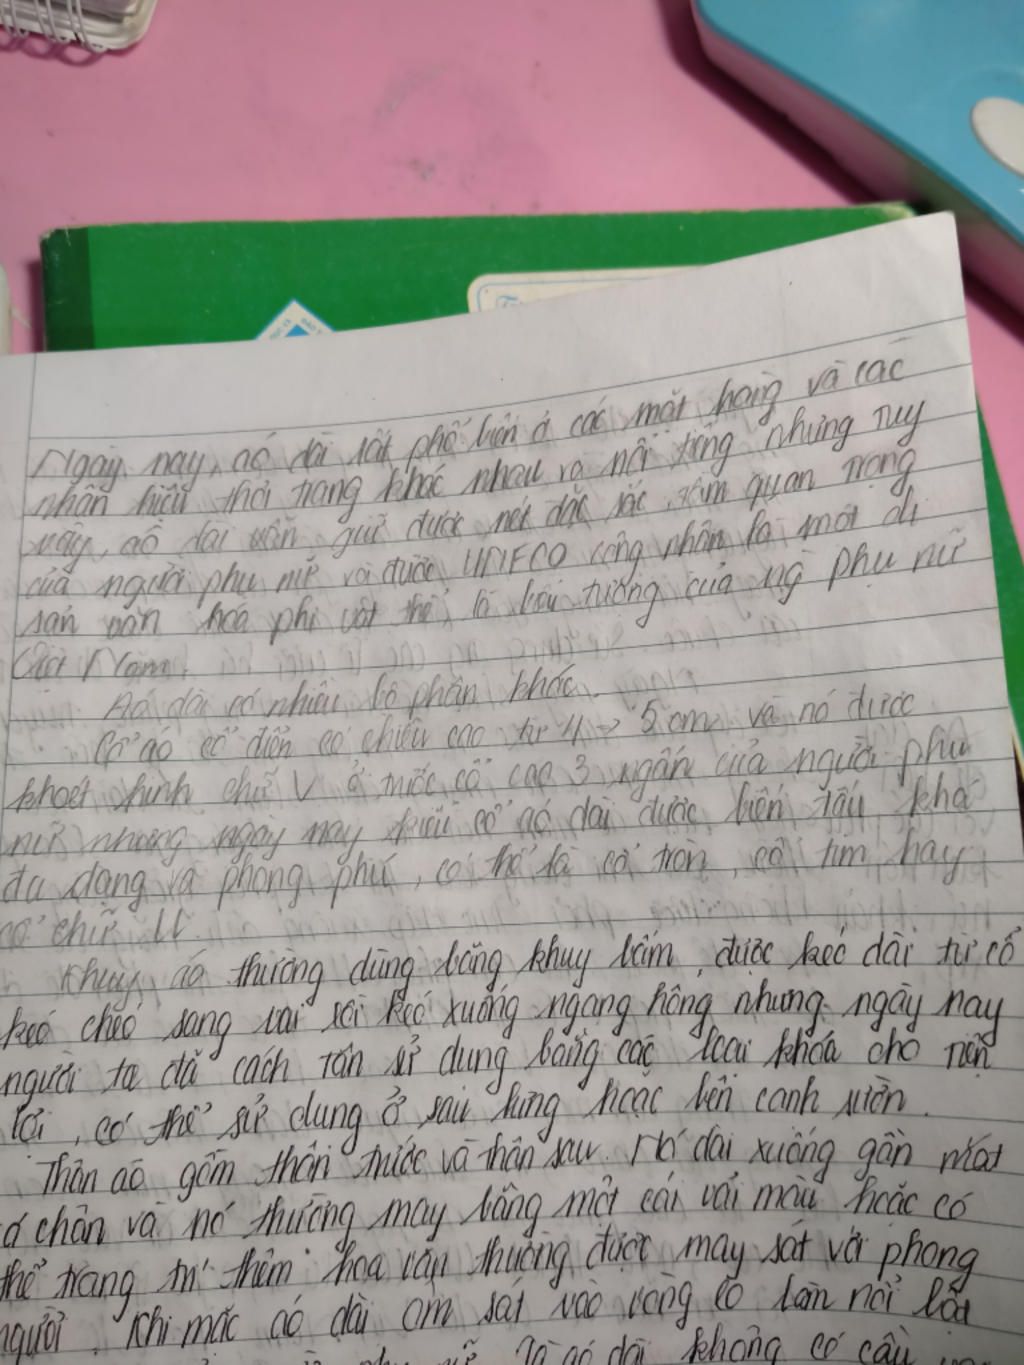 Ngày nay, áo dài rất phổ biến ở các mặt hàng và các
nhãn hiệu thời trang khác nhau và nổi tiếng nhưng tuy
vậy, áo dài vẫn giữ được nét đặc sắc, tầm quan trọng
của người phụ nữ và được UNFCO công nhận là một di
sản văn hóa phi vật thể, là biểu tượng của ng phụ nữ
Việt Nam.
Áo dài có nhiều bộ phận khác.
Cổ áo cổ điển có chiều cao từ 4 → 5 cm và nó được
khoét hình chữ V ở trước cổ cao 3 ngấn của người phụ
nữ nhưng ngày nay kiểu cổ áo dài được biến tấu khá
đa dạng và phong phú, có thể là cổ tròn, cổ tim hay
cổ chữ U.
Khuy áo thường dùng bằng khuy bấm, được kéo dài từ cổ
kéo chéo sang vai rồi kéo xuống ngang hông nhưng ngày nay
người ta đã cách tân sử dụng bằng các loại khóa cho tiện
lợi, có thể sử dụng ở sau lưng hoặc bên cạnh sườn.
Thân áo gồm thân trước và thân sau. Nó dài xuống gần mắt
cá chân và nó thường may bằng một cái vải màu hoặc có
thể trang trí thêm hoa văn thường được may sát với phong
người. Khi mặc áo dài ôm sát vào vòng eo làm nổi bật
áo dài không có cầu